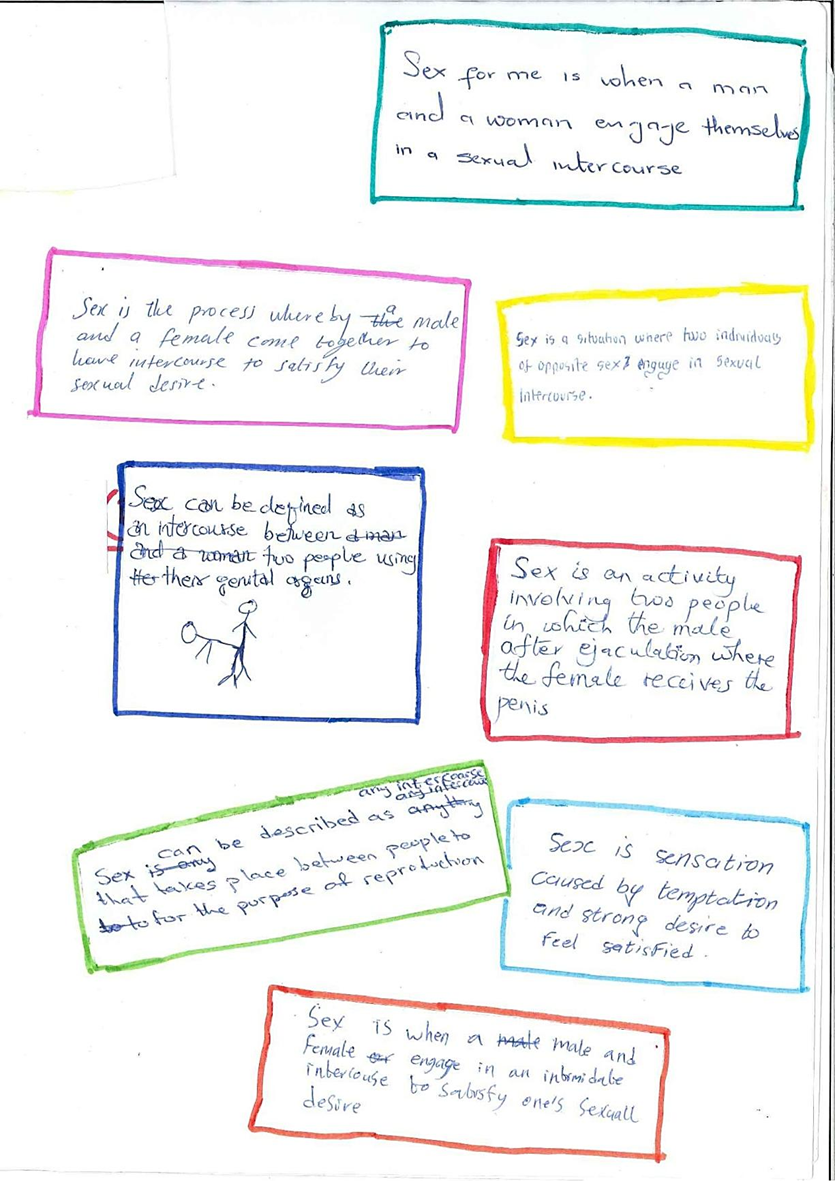 Sex for me is when a man
and a woman engage themselves
in a sexual intercourse
Sex is the process where by the a male
and a female come together to
have intercourse to satisfy their
sexual desire.
Sex is a situation where two individuals
of opposite sex engage in sexual
Intercourse.
Sex can be defined as
an intercourse between a man
and a woman two people using
their genital organs.
Sex is an activity
involving two people
in which the male
after ejaculation where
the female receives the
penis
any intercourse
any intercourse
Sex is any can be described as anything
that takes place between people to
to to for the purpose of reproduction
Sex is sensation
caused by temptation
and strong desire to
feel satisfied.
Sex is when a male male and
female or engage in an
intercouse to satisfy one's sexuall
desire